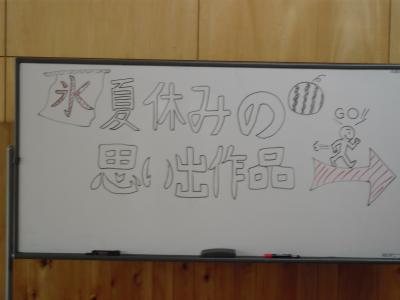 氷
夏休みの
思い出作品
GO!!